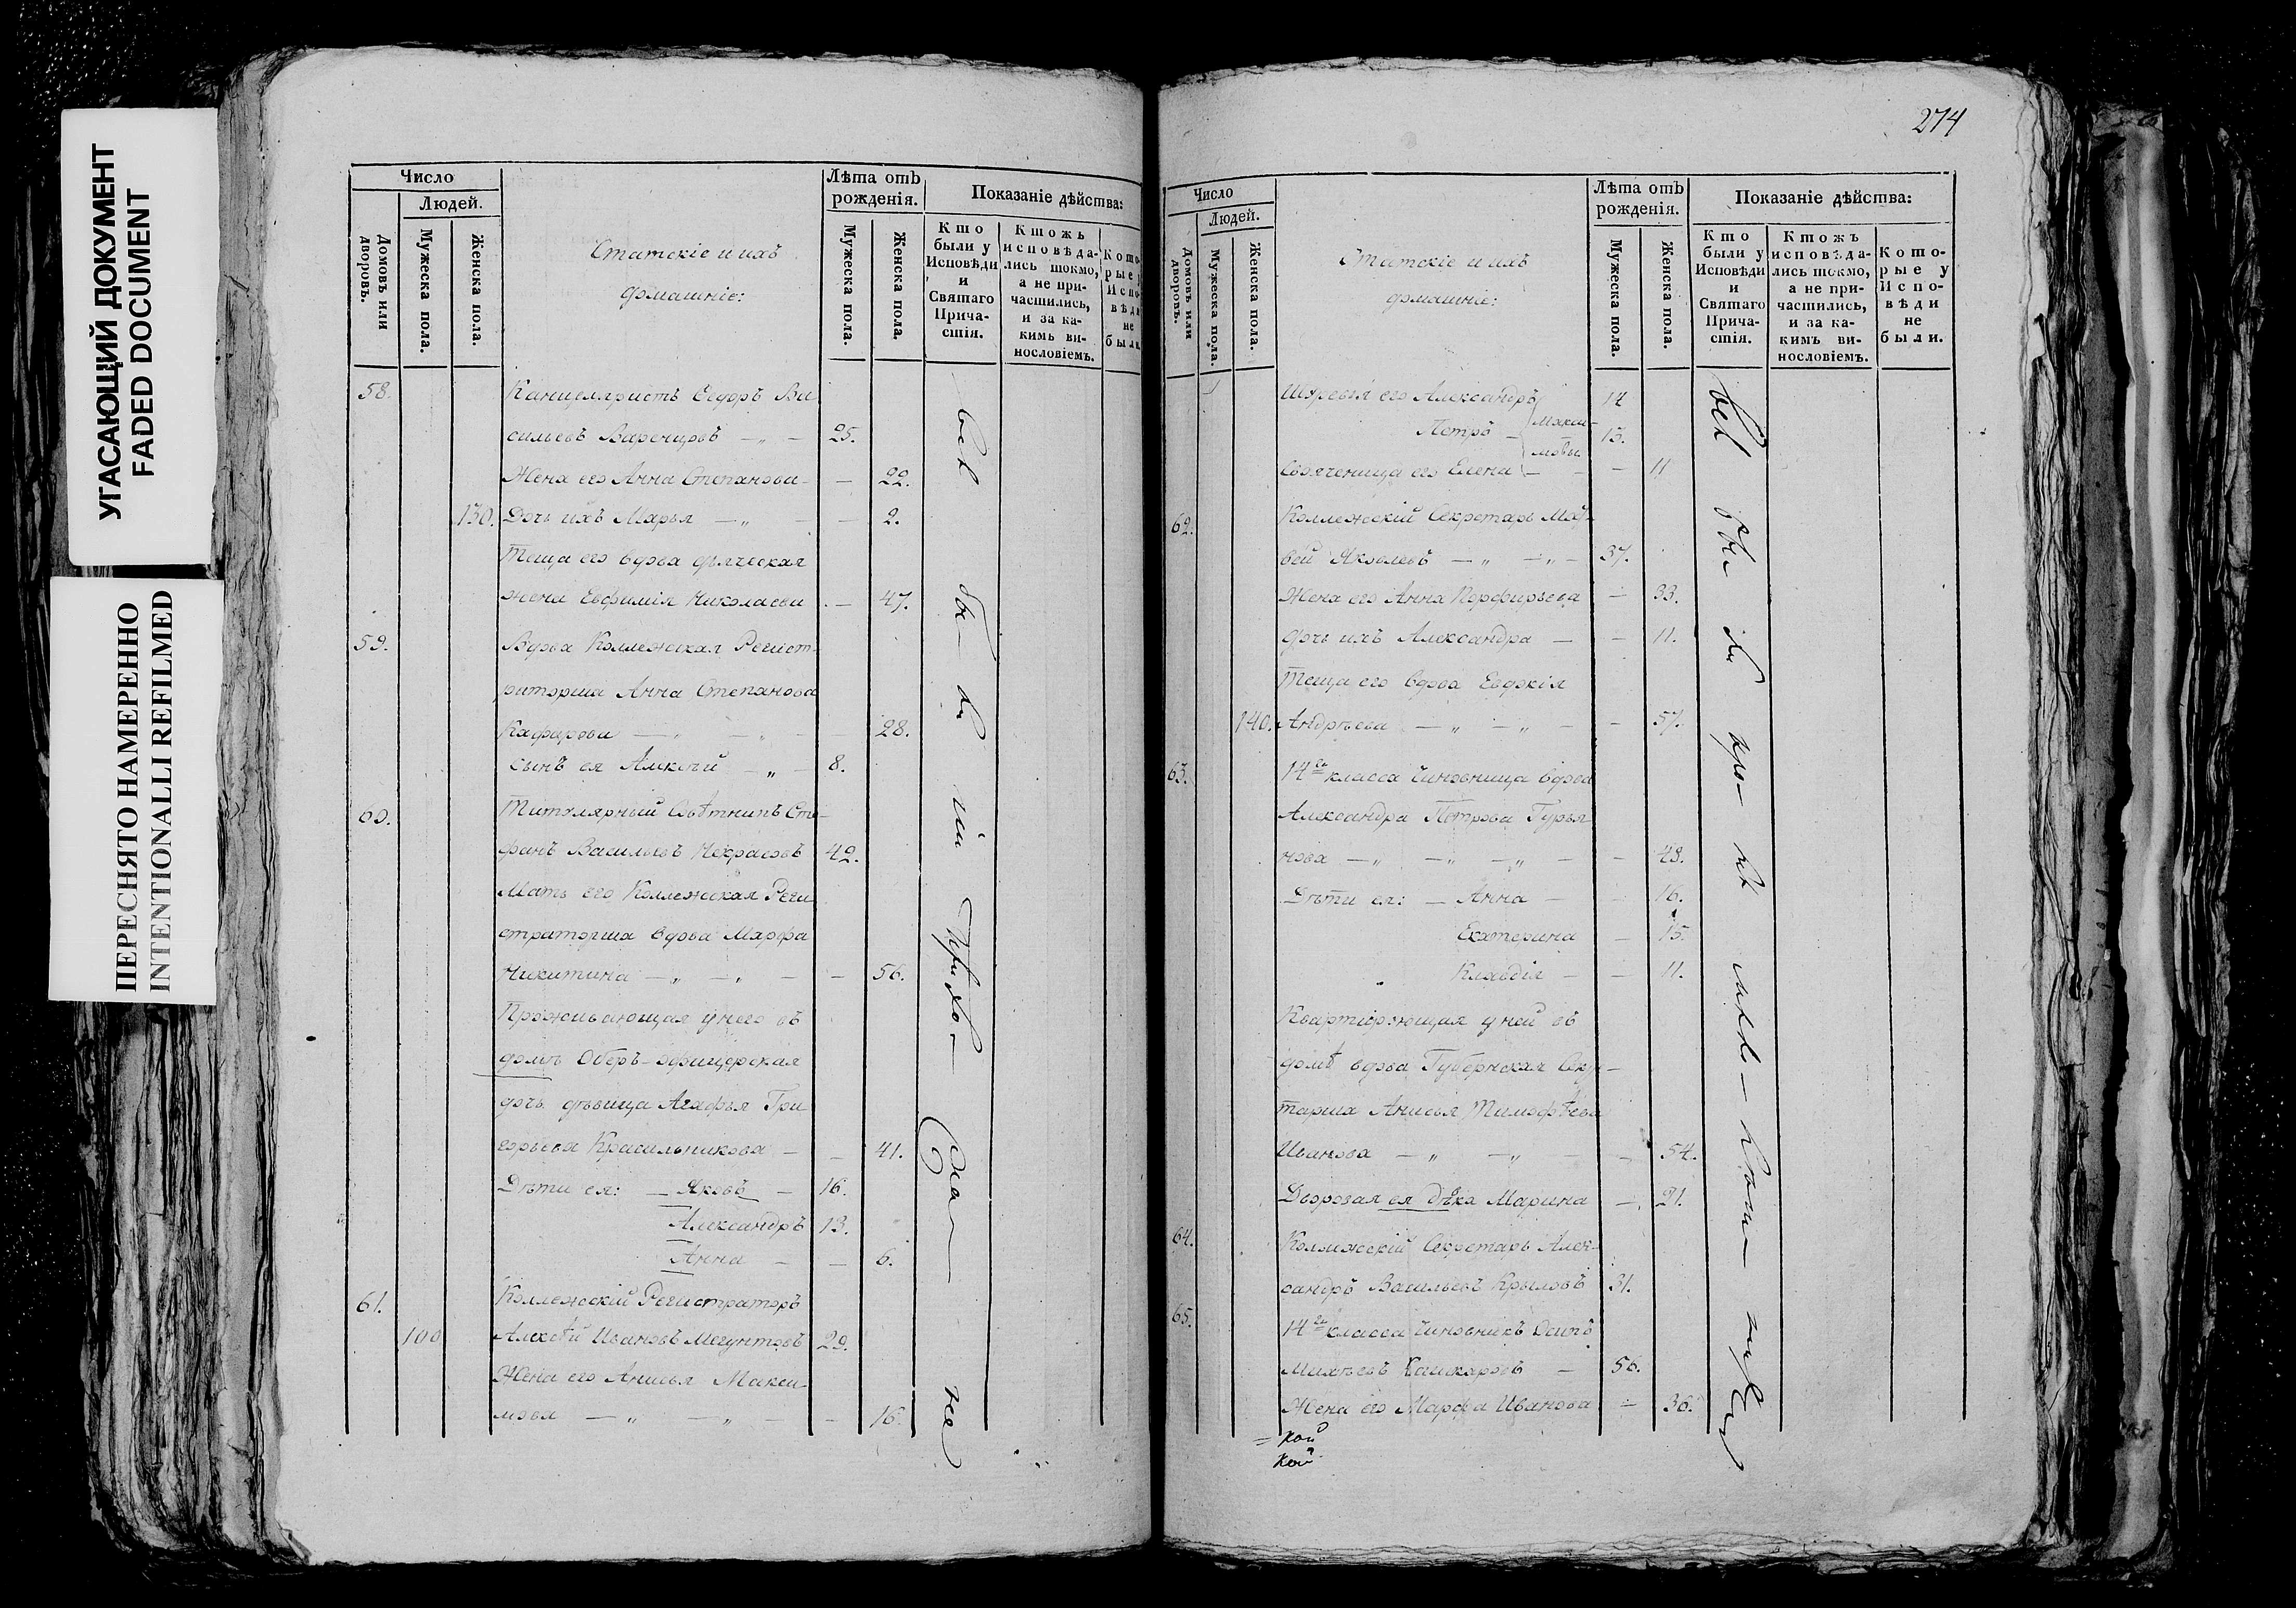 УГАСАЮЩИЙ ДОКУМЕНТ
FADED DOCUMENT
ПЕРЕСНЯТО НАМЕРЕННО
INTENTIONALLI REFILMED
Число
Людей.
Домовъ или дворовъ.
Мужеска пола.
Женска пола.
Статскіе и ихъ
домашніе:
Лѣта отъ рожденія.
Мужеска пола.
Женска пола.
Показаніе дѣйства:
Кто были у Исповѣди и Святаго Причастія.
Ктожъ исповѣдались токмо, а не причастились, и за какимъ винословіемъ.
Которые у Исповѣди не были.
58. Канцеляристъ Ѳедоръ Ва
сильевъ Варенцовъ — „ — 25.
Жена его Анна Степанова — — 22.
130. Дочь ихъ Марья — „ — — 2.
Теща его вдова дьяческая
жена Евфимія Николаева — 47.
59. Вдова Коллежская Регист-
раторша Анна Степанова
— „ — „ — 28.
сынъ ея Алексѣй — „ — 8.
60. Титулярный Совѣтникъ Сте-
фанъ Васильевъ Некрасовъ 42.
Мать его Коллежская Реги
страторша вдова Марфа
Никитина — „ — „ — — 56.
Проживающая у него въ
домѣ Оберъ-офицерская
дочь дѣвица Агафья Гри
горьева Красильникова — — 41.
Дѣти ея: — Яковъ — 16.
Александръ 13.
Анна — — 6.
61. Коллежскій Регистраторъ
100 Алексѣй Ивановъ 29.
Жена его Анисья Макси-
мова — „ — „ — 16.
274
Число
Людей.
Домовъ или дворовъ.
Мужеска пола.
Женска пола.
Статскіе и ихъ
домашніе:
Лѣта отъ рожденія.
Мужеска пола.
Женска пола.
Показаніе дѣйства:
Кто были у Исповѣди и Святаго Причастія.
Ктожъ исповѣдались токмо, а не причастились, и за какимъ винословіемъ.
Которые у Исповѣди не были.
Шурьевя его Александръ 14
Петръ — Макси-мовы 13.
Свояченица его Елена — — — 11
62. Коллежскій Секретарь Мат-
вей Яковлевъ — „ — „ — 37.
Жена его Анна Порфирьева — 33.
дочь ихъ Александра — — 11.
Теща его вдова Евдокія
140. Андреева — „ — „ — — 57.
63. 14го класса Чиновница вдова
Александра Петрова Гурья
нова — „ — „ — „ — — 48.
Дѣти ея: — Анна — — 16.
Екатерина — 15.
Клавдія — — 11.
Квартирующая у ней въ
домѣ вдова Губернская Секре-
тарша Анисья Тимофѣева
Иванова — „ — „ — — 54.
Дворовая ея дѣвка Марина — 21.
64. Коллежскій Секретарь Алек-
сандръ Васильевъ Крыловъ 31.
65. 14го класса Чиновникъ Осипъ
Михѣевъ Кашкаровъ — 56.
Жена его Марфа Иванова — 36.
= кой
кой